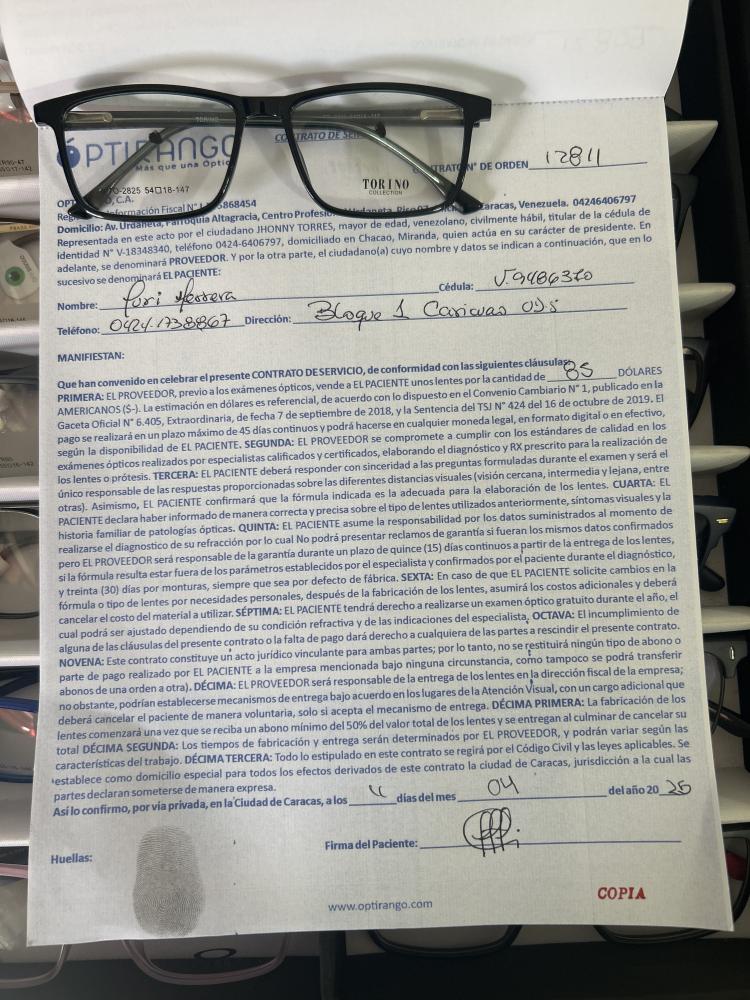 OPTIRANGO
Más que una Optic
CONTRATO DE SER
N° DE ORDEN 12811
TORINO
2825 54□18-147
TORINO
COLLECTION
, C.A.
Información Fiscal N° 5868454
Domicilio: Av. Urdaneta, Parroquia Altagracia, Centro Profesio Urdaneta, Piso Caracas, Venezuela. 04246406797
Representada en este acto por el ciudadano JHONNY TORRES, mayor de edad, venezolano, civilmente hábil, titular de la cédula de
identidad N° V-18348340, teléfono 0424-6406797, domiciliado en Chacao, Miranda, quien actúa en su carácter de presidente. En
adelante, se denominará PROVEEDOR. Y por la otra parte, el ciudadano(a) cuyo nombre y datos se indican a continuación, que en lo
sucesivo se denominará EL PACIENTE:
Nombre: Yuri Herrera Cédula: V.9486370
Teléfono: 0424.1738867 Dirección: Bloque 1 Caricuao UD5
MANIFIESTAN:
Que han convenido en celebrar el presente CONTRATO DE SERVICIO, de conformidad con las siguientes cláusulas:
PRIMERA: EL PROVEEDOR, previo a los exámenes ópticos, vende a EL PACIENTE unos lentes por la cantidad de 85 DÓLARES
AMERICANOS ($-). La estimación en dólares es referencial, de acuerdo con lo dispuesto en el Convenio Cambiario N° 1, publicado en la
Gaceta Oficial N° 6.405, Extraordinaria, de fecha 7 de septiembre de 2018, y la Sentencia del TSJ N° 424 del 16 de octubre de 2019. El
pago se realizará en un plazo máximo de 45 días continuos y podrá hacerse en cualquier moneda legal, en formato digital o en efectivo,
según la disponibilidad de EL PACIENTE. SEGUNDA: EL PROVEEDOR se compromete a cumplir con los estándares de calidad en los
exámenes ópticos realizados por especialistas calificados y certificados, elaborando el diagnóstico y RX prescrito para la realización de
los lentes o prótesis. TERCERA: EL PACIENTE deberá responder con sinceridad a las preguntas formuladas durante el examen y será el
único responsable de las respuestas proporcionadas sobre las diferentes distancias visuales (visión cercana, intermedia y lejana, entre
otras). Asimismo, EL PACIENTE confirmará que la fórmula indicada es la adecuada para la elaboración de los lentes. CUARTA: EL
PACIENTE declara haber informado de manera correcta y precisa sobre el tipo de lentes utilizados anteriormente, síntomas visuales y la
historia familiar de patologías ópticas. QUINTA: EL PACIENTE asume la responsabilidad por los datos suministrados al momento de
realizarse el diagnostico de su refracción por lo cual No podrá presentar reclamos de garantía si fueran los mismos datos confirmados
pero EL PROVEEDOR será responsable de la garantía durante un plazo de quince (15) días continuos a partir de la entrega de los lentes,
si la fórmula resulta estar fuera de los parámetros establecidos por el especialista y confirmados por el paciente durante el diagnóstico,
y treinta (30) días por monturas, siempre que sea por defecto de fábrica. SEXTA: En caso de que EL PACIENTE solicite cambios en la
fórmula o tipo de lentes por necesidades personales, después de la fabricación de los lentes, asumirá los costos adicionales y deberá
cancelar el costo del material a utilizar. SÉPTIMA: EL PACIENTE tendrá derecho a realizarse un examen óptico gratuito durante el año, el
cual podrá ser ajustado dependiendo de su condición refractiva y de las indicaciones del especialista. OCTAVA: El incumplimiento de
alguna de las cláusulas del presente contrato o la falta de pago dará derecho a cualquiera de las partes a rescindir el presente contrato.
NOVENA: Este contrato constituye un acto jurídico vinculante para ambas partes; por lo tanto, no se restituirá ningún tipo de abono o
parte de pago realizado por EL PACIENTE a la empresa mencionada bajo ninguna circunstancia, como tampoco se podrá transferir
abonos de una orden a otra). DÉCIMA: EL PROVEEDOR será responsable de la entrega de los lentes en la dirección fiscal de la empresa;
no obstante, podrían establecerse mecanismos de entrega bajo acuerdo en los lugares de la Atención Visual, con un cargo adicional que
deberá cancelar el paciente de manera voluntaria, solo si acepta el mecanismo de entrega. DÉCIMA PRIMERA: La fabricación de los
lentes comenzará una vez que se reciba un abono mínimo del 50% del valor total de los lentes y se entregan al culminar de cancelar su
total DÉCIMA SEGUNDA: Los tiempos de fabricación y entrega serán determinados por EL PROVEEDOR, y podrán variar según las
características del trabajo. DÉCIMA TERCERA: Todo lo estipulado en este contrato se regirá por el Código Civil y las leyes aplicables. Se
establece como domicilio especial para todos los efectos derivados de este contrato la ciudad de Caracas, jurisdicción a la cual las
partes declaran someterse de manera expresa.
Así lo confirmo, por vía privada, en la Ciudad de Caracas, a los días del mes 04 del año 20 25
Huellas:
Firma del Paciente:
www.optirango.com
COPIA